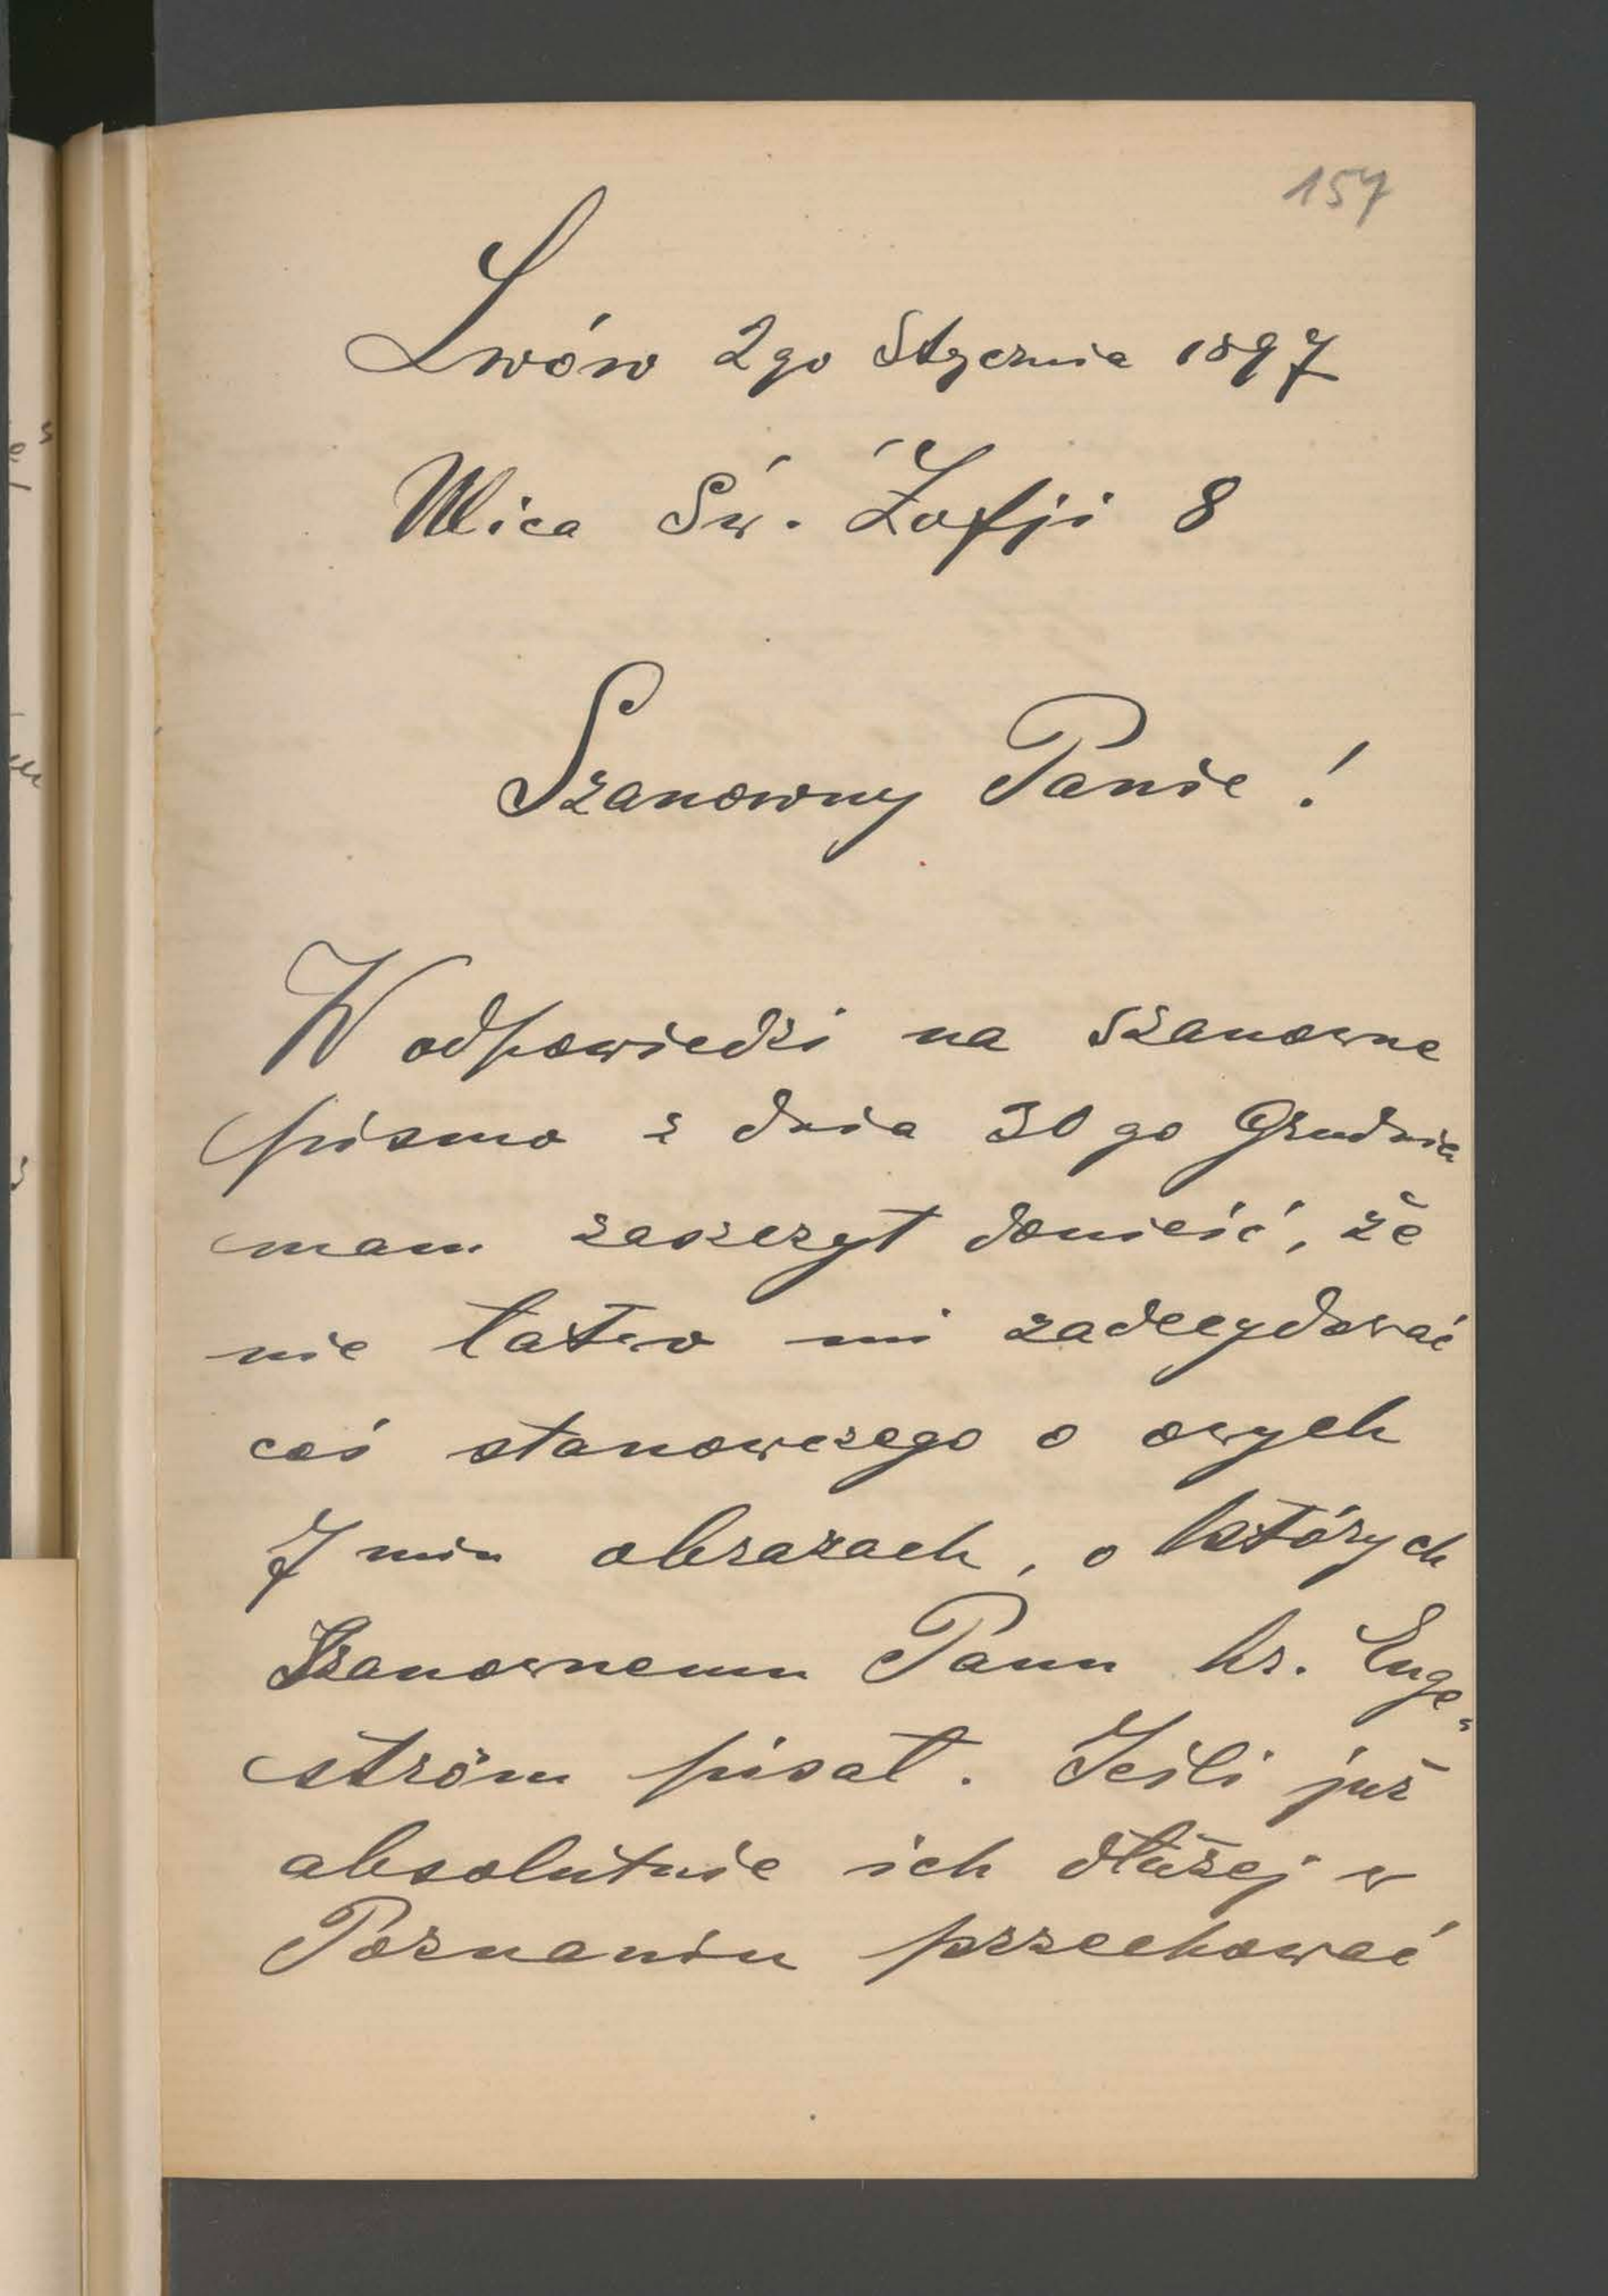 157
Lwów 2go Stycznia 1897
Ulica Św. Zofji 8
Szanowny Panie!
W odpowiedzi na szanowne
pismo z dnia 30go Grudnia
mam zaszczyt donieść, że
nie łatwo mi zadecydować
coś stanowczego o owych
7miu obrazach, o których
Szanownemu Panu hr. Enge-
ström pisał. Jeśli już
absolutnie ich dłużej w
Poznaniu przechować